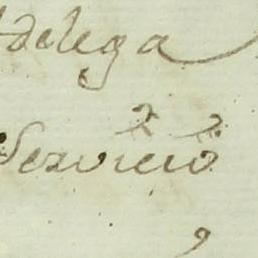 delega
Servicio